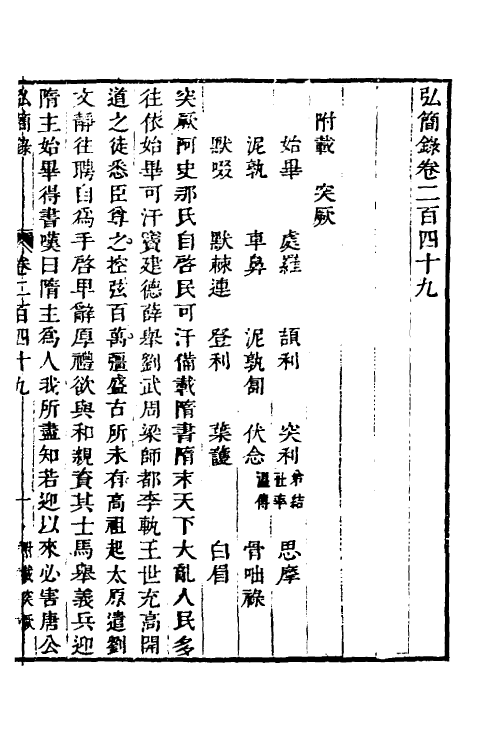 弘簡錄卷二百四十九
附載　突厥
始畢　處羅　頡利　突利弟結社率　思摩
泥孰　車鼻　泥孰匐　伏念溫傅　骨咄祿
默啜　默棘連　登利　葉護　白眉
突厥阿史那氏自啓民可汗備載隋書隋末天下大亂人民多
往依始畢可汗竇建德薛舉劉武周梁師都李軌王世充高開
道之徒悉臣尊之控弦百萬彊盛古所未有高祖起太原遣劉
文靜往聘自爲手啓卑辭厚禮欲與和親資其士馬舉義兵迎
隋主始畢得書嘆曰隋主爲人我所盡知若迎以來必害唐公
弘簡錄　卷二百四十九　一　附載突厥